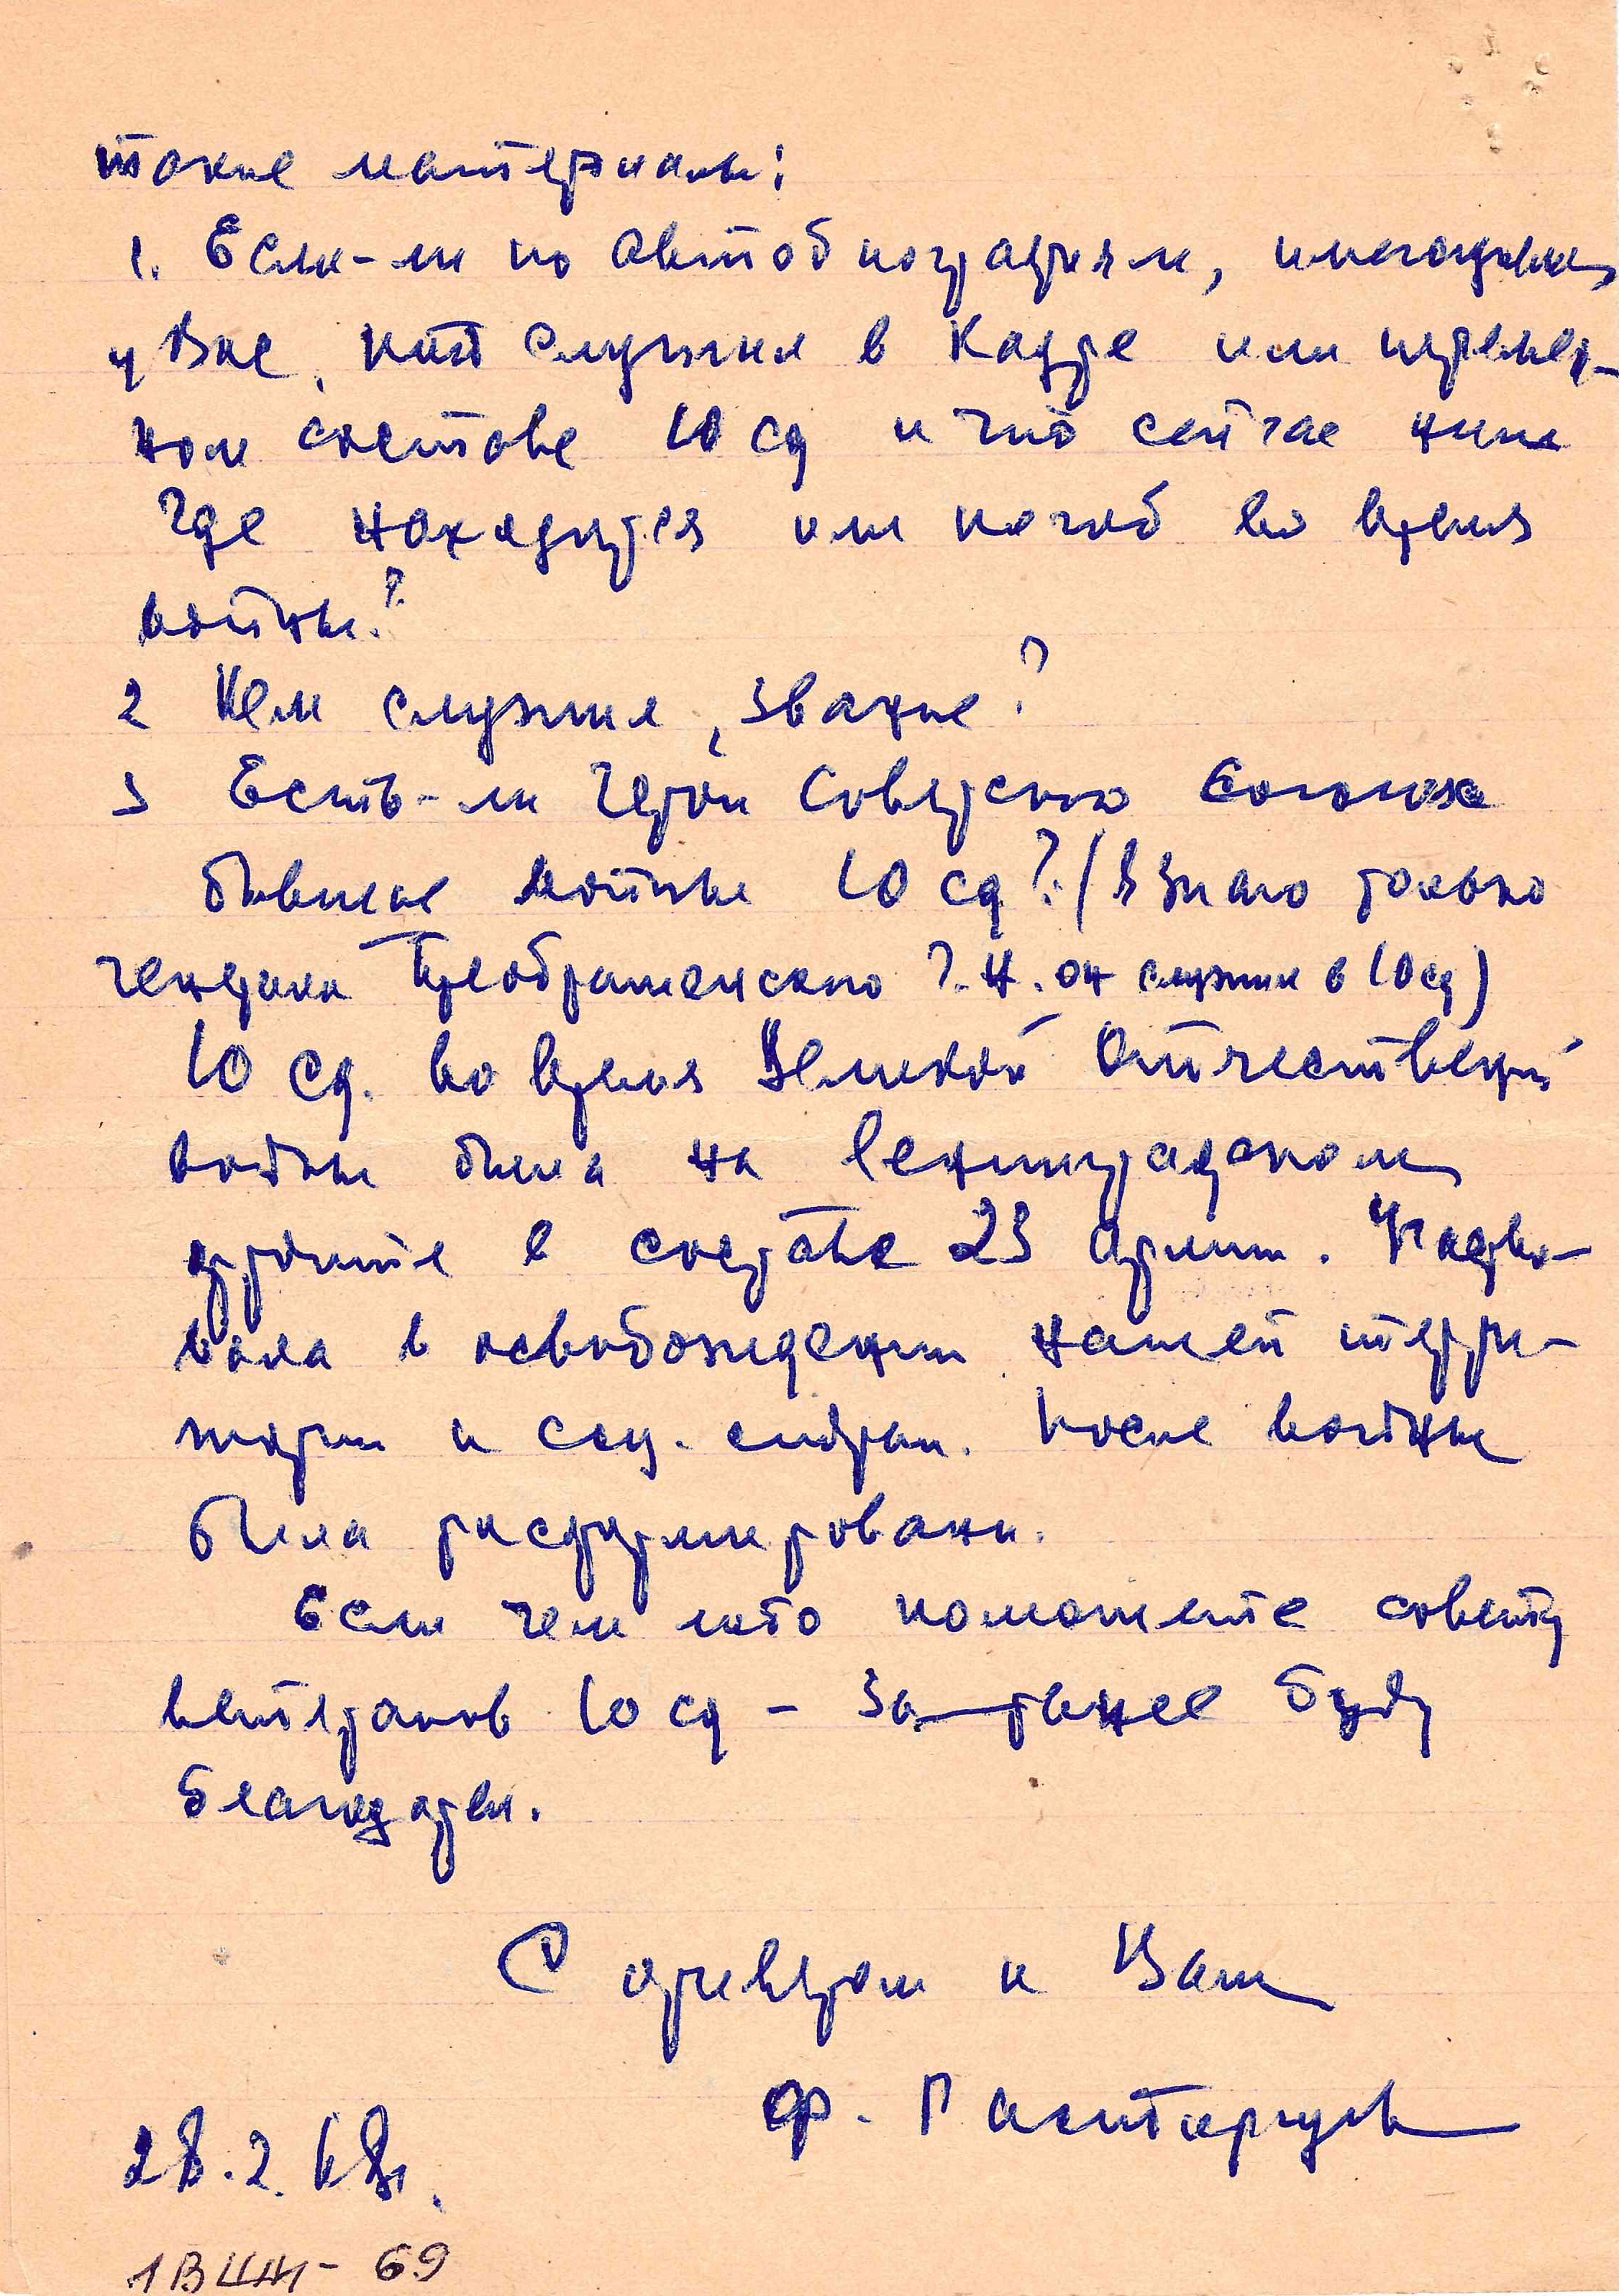 такие материалы:
1. Если-ли по автобиографиям, имеющимся
у Вас, кто служил в кадре или перемен-
ном составе 10 сд и кто сейчас
где находится или погиб во время
войны?
2 Кем служил, звание?
3 Есть-ли Герои Советского Союза
бывшие войны 10 сд? (Я знаю только
генерала Преображенского т.к. он служил в 10 сд)
10 сд. во время Великой Отечественной
войны была на Ленинградском
фронте в составе 23 армии. Участво-
вала в освобождении нашей терри-
тории и соц. стран. После войны
была расформирована.
Если чем либо поможете совету
ветеранов 10 сд - за-ранее буду
благодарен.
С приветом к Вам
Ф. Расторгуев
28.2.68г.
1ВШЖ- 69